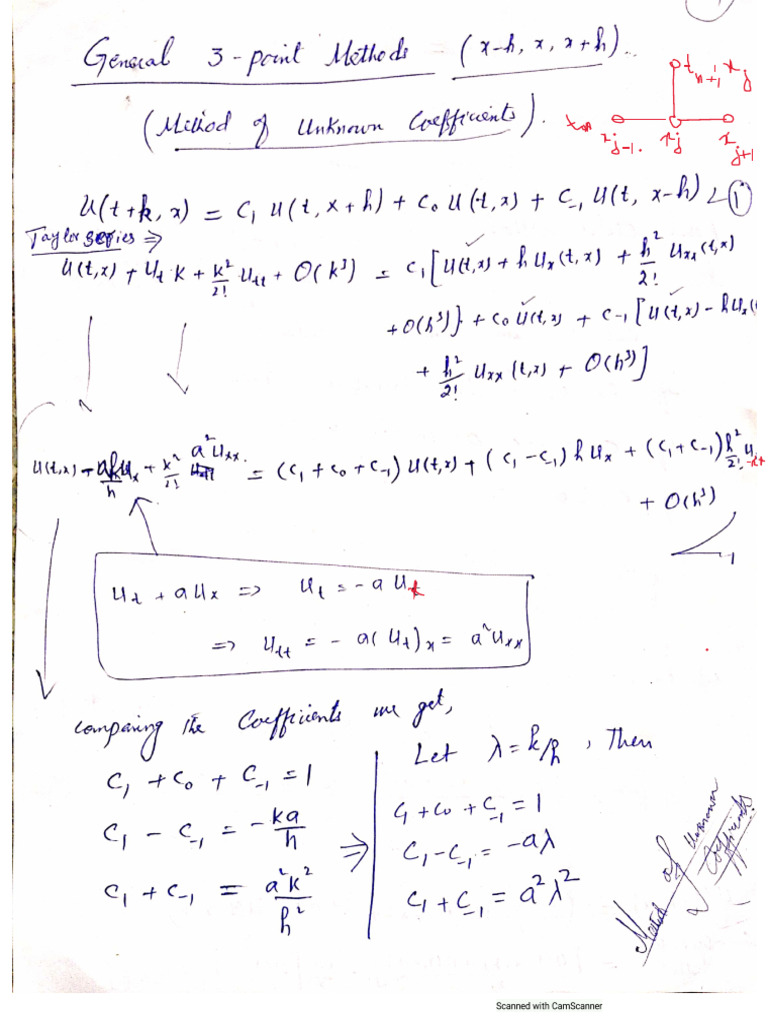 General 3-point Methods (x-h, x, x+h)...
(Method of Unknown Coefficients).
t_{n+1}, x_j
x_{j-1}. x_j x_{j+1}
U(t+k, x) = C_1 U(t, x+h) + C_0 U(t, x) + C_{-1} U(t, x-h) ∠ ①
Taylor series ⇒
U(t,x) + U_t k + k²/2! U_tt + O(k³) = C_1 [U(t,x) + h U_x(t,x) + h²/2! U_xx(t,x)
+ O(h³)} + C_0 U(t,x) + C_{-1} [U(t,x) - h U_x(
+ h²/2! U_xx (t,x) + O(h³)]
a² U_xx.
U(t,x) - ak U_x + k²/2! = (C_1 + C_0 + C_{-1}) U(t,x) + (C_1 - C_{-1}) h U_x + (C_1 + C_{-1}) h²/2! U
h
+ O(h³)
U_t + a U_x ⇒ U_t = -a U
⇒ U_tt = - a( U_t)_x = a² U_xx
comparing the Coefficients we get,
Let λ = k/h, Then
C_1 + C_0 + C_{-1} = 1
C_1 - C_{-1} = -ka/h
C_1 + C_{-1} = a²k²/h²
⇒
C_1 + C_0 + C_{-1} = 1
C_1 - C_{-1} = -aλ
C_1 + C_{-1} = a²λ²
of Unknown
Coefficients
Scanned with CamScanner